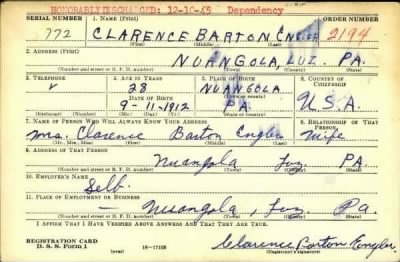 HONORABLY DISCHARGED: 12-10-45 Dependency
SERIAL NUMBER 1. NAME (Print) ORDER NUMBER
772 CLARENCE BARTON ENGLER 2194
(First) (Middle) (Last)
2. ADDRESS (Print)
NUANGOLA, LUZ. PA.
(Number and street or R. F. D. number) (Town) (County) (State)
3. TELEPHONE 4. AGE IN YEARS 5. PLACE OF BIRTH 6. COUNTRY OF CITIZENSHIP
28 NUANGOLA
DATE OF BIRTH (Town or county)
9-11-1912 PA. U.S.A.
(Mo.) (Day) (Yr.) (State or country)
7. NAME OF PERSON WHO WILL ALWAYS KNOW YOUR ADDRESS 8. RELATIONSHIP OF THAT PERSON
Mrs. Clarence Barton Engler Wife
(Mr., Mrs., Miss) (First) (Middle) (Last)
9. ADDRESS OF THAT PERSON
Nuangola Luz. PA.
(Number and street or R. F. D. number) (Town) (County) (State)
10. EMPLOYER'S NAME
Self.
11. PLACE OF EMPLOYMENT OR BUSINESS
— Nuangola, Luz. Pa.
(Number and street or R. F. D. number) (Town) (County) (State)
I AFFIRM THAT I HAVE VERIFIED ABOVE ANSWERS AND THAT THEY ARE TRUE.
REGISTRATION CARD
D. S. S. Form 1 (over) 16—17105 Clarence Barton Engler
(Registrant's signature)